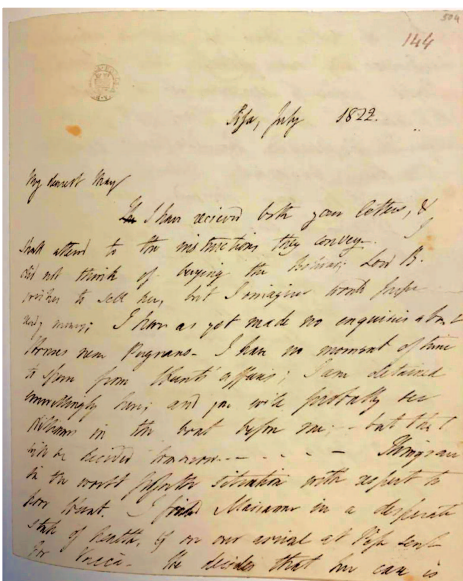 504
144
Pisa, July 1822.
My dearest Mary
I have recieved both your letters, &
shall attend to the instructions they convey. I
did not think of buying the Bolivar; Lord B.
wishes to sell her, but I imagine would prefer
ready money. I have as yet made no enquiries about
houses near Pugnano- I have no moment of time
to spare from Hunt's affairs; I am detained
unwillingly here; and you will probably see
Williams in the boat before me, - but that
will be decided tomorrow - - - - - Things are
in the worst possible situation with respect to
poor Hunt. - I find Marianne in a desperate
state of health, & on our arrival at Pisa sent
for Vaccà. He decides that her case is